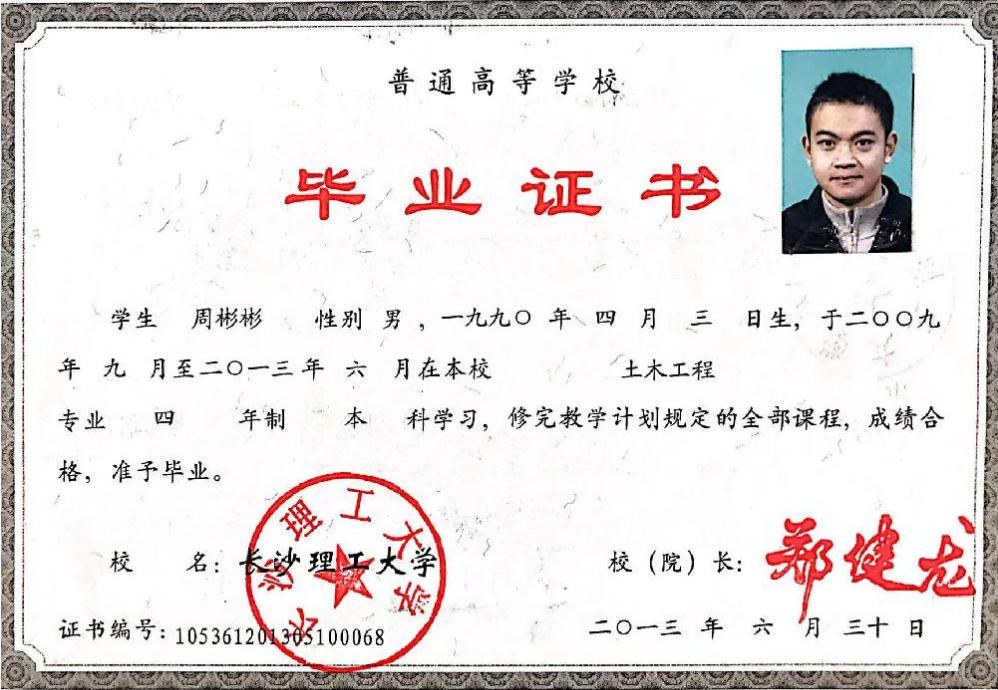 普通高等学校
毕业证书
学生 周彬彬 性别 男 ,一九九〇 年 四 月 三 日生, 于二〇〇九
年 九 月至二〇一三年 六 月在本校 土木工程
专业 四 年制 本 科学习, 修完教学计划规定的全部课程, 成绩合
格, 准予毕业。
长沙理工大学
校 名: 长沙理工大学
校（院）长: 郑健龙
证书编号: 105361201305100068
二〇一三 年 六 月 三十 日